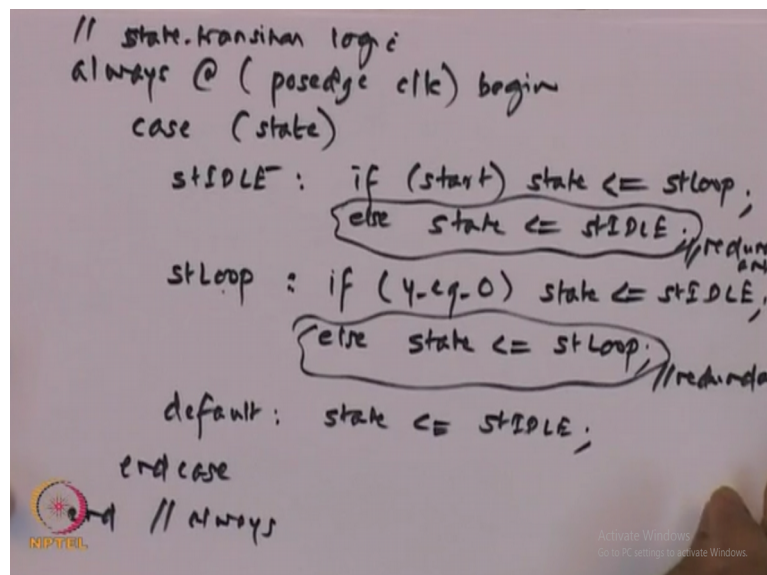 // state transition logic
always @ (posedge clk) begin
case (state)
stIDLE : if (start) state <= stLoop ;
else state <= stIDLE ; // redun
ant
stLoop : if (y_eq_0) state <= stIDLE ;
else state <= stLoop ; // redunda
default : state <= stIDLE ;
endcase
end // always
NPTEL
Activate Windows
Go to PC settings to activate Windows.